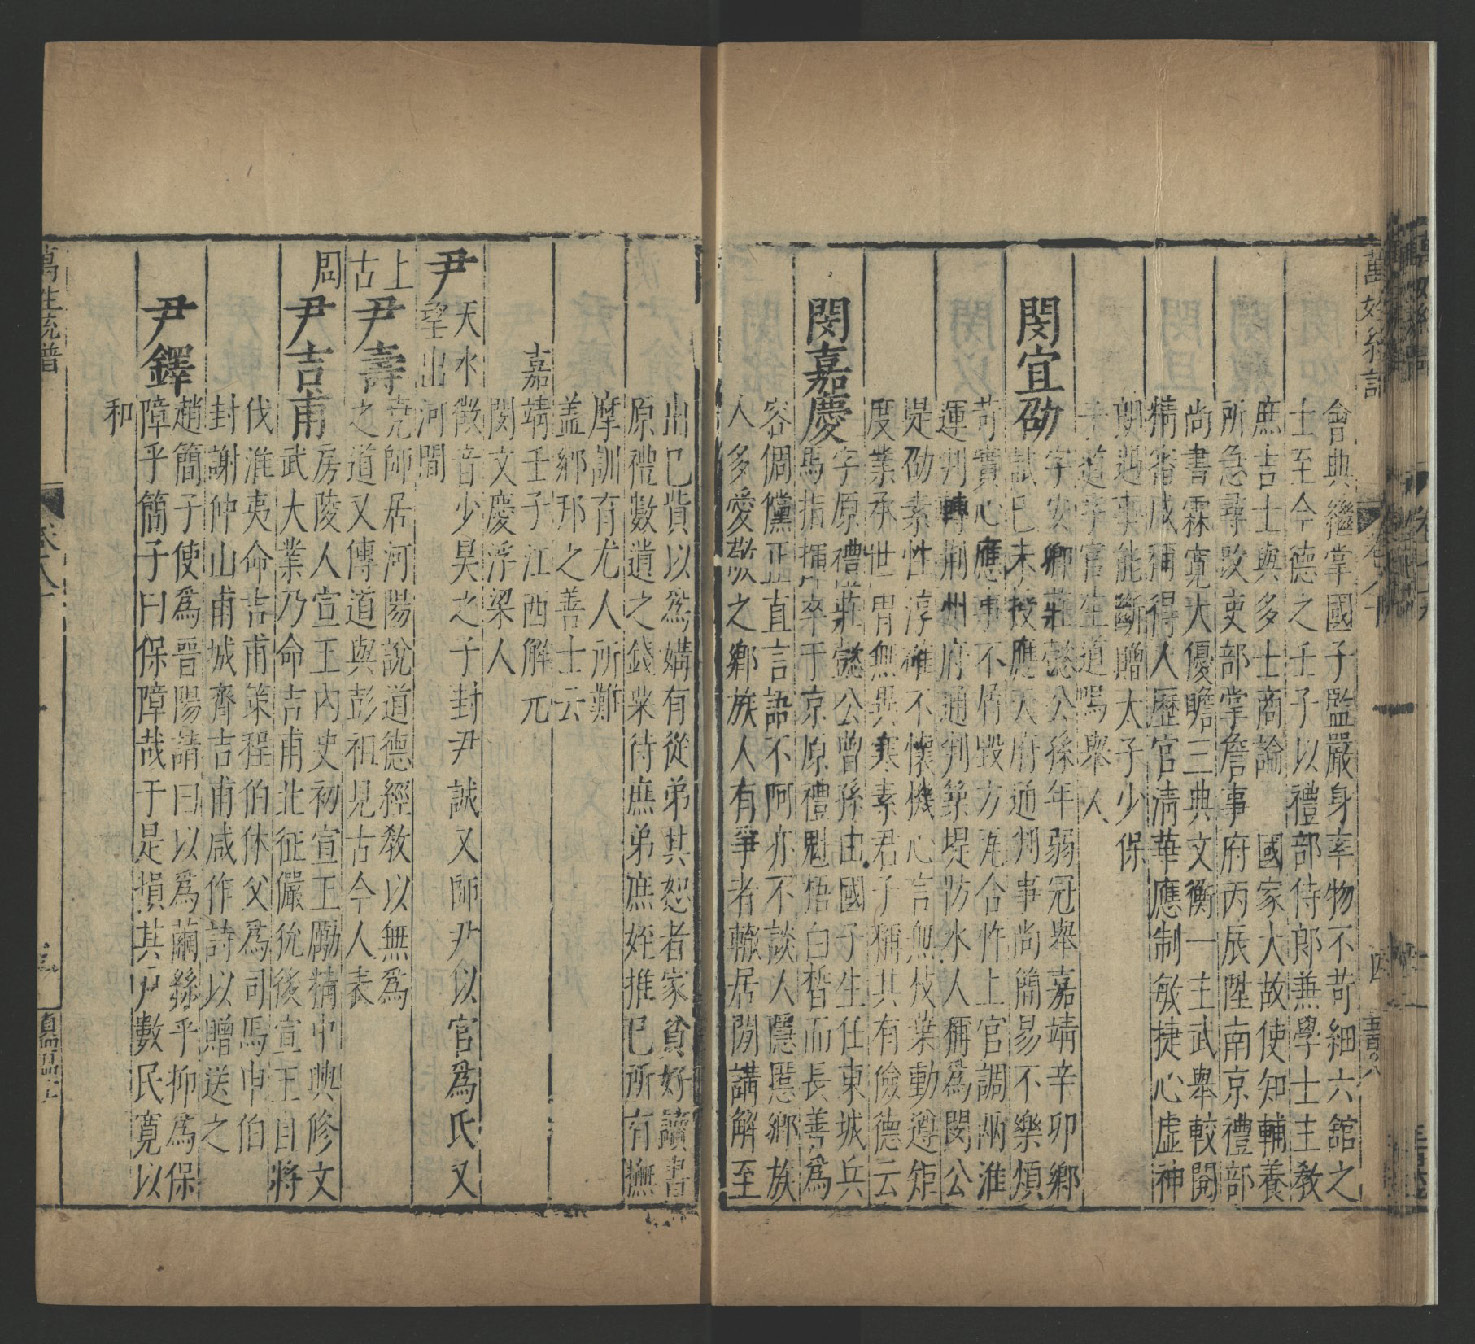 會典繼掌國子監嚴身率物不苛細六舘之
士至今德之壬子以禮部侍郎兼學士主教
庶吉士與多士商論 國家大故使知輔養
所急尋改吏部掌詹事府丙辰陞南京禮部
尚書霖寬大優贍三典文衡一主武舉較閱
精審咸稱得人歷官清華應制敏捷心虛神
朗遇事能斷贈太子少保
閔宜劭
字安卿莊懿公孫年弱冠舉嘉靖辛卯鄉
試已未授應天府通判事尚簡易不樂煩
苛實心應事不脩毀方

運判轉荊州府通判築堤防水人稱爲閔公
堤劭素性淳雅不懷機心言無枝葉動遵矩
度業承世胄無異寒素君子稱其有儉德云
閔嘉慶
字原禮莊懿公曾孫由國子生任東城兵
馬指揮卒于京原禮魁梧白皙而長善爲
容倜儻正直言語不阿亦不談人隱慝鄉族
人多愛敬之鄉族人有爭者輒居間講解至
出己貲以爲媾有從弟其恕者家貧好讀書
原禮數遺之錢粟待庶弟庶姪推已所有撫
摩訓育尤人所難
蓋鄉邦之善士云
嘉靖壬子江西解元
閔文慶浮梁人
尹
天水徵音少昊之子封尹誠又師尹以官爲氏又
望出河間
上古
尹壽
堯師居河陽說道德經教以無爲
之道又傳道與彭祖見古今人表
周
尹吉甫
房陵人宣王內史初宣王勵精中興修文
武大業乃命吉甫北征儼狁後宣王自將
伐淮夷命吉甫策程伯休父爲司馬申伯
封謝仲山甫城齊吉甫咸作詩以贈送之
尹鐸
趙簡子使爲晉陽請曰以爲繭絲乎抑爲保
障乎簡子曰保障哉于是損其戶數民寬以
和